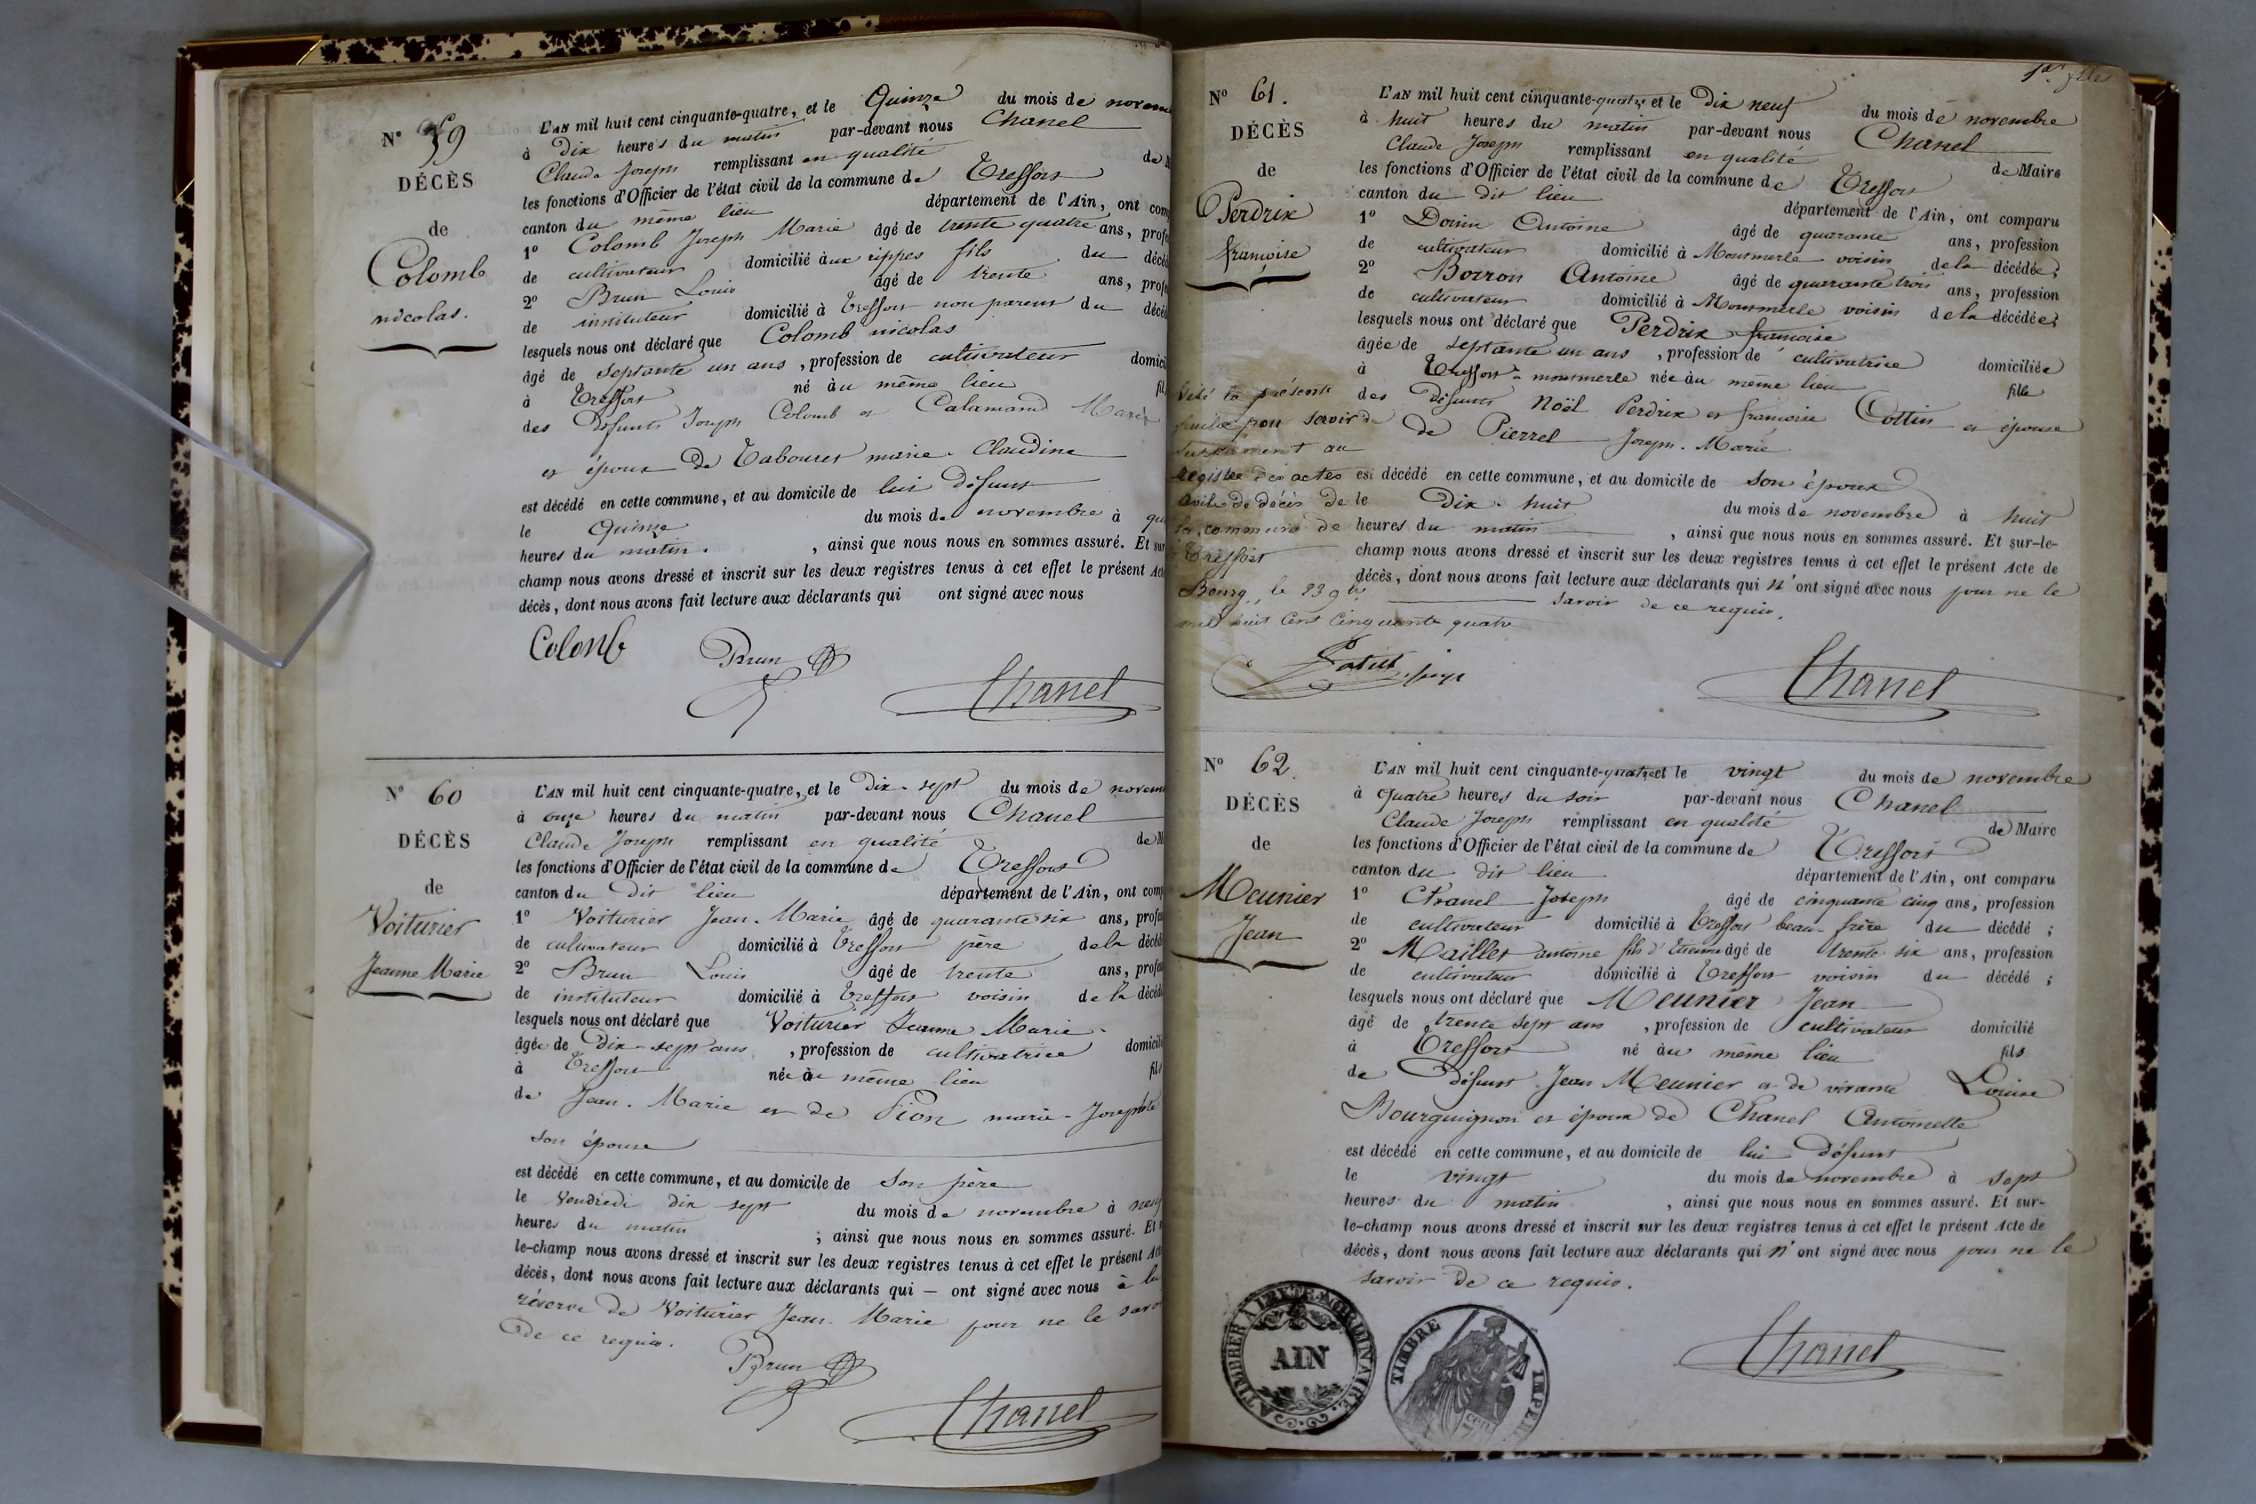 N° 59
DÉCÈS
de
Colomb
nicolas.
L'AN mil huit cent cinquante-quatre, et le Quinze du mois de novem
à Dix heures du matin par-devant nous Chanel
Claude Joseph remplissant en qualité de M
les fonctions d'Officier de l'état civil de la commune de Treffort
canton du même lieu département de l'Ain, ont com
1° Colomb Joseph Marie âgé de trente quatre ans, profe
de cultivateur domicilié aux rippes fils du décéd
2° Brun Louis âgé de trente ans, profe
de instituteur domicilié à Treffort non parent du décéd
lesquels nous ont déclaré que Colomb nicolas
âgé de septante un ans, profession de cultivateur domicil
à Treffort né au même lieu fil
des défunts Joseph Colomb et Calamand Marie
et époux de Tabouret marie-Claudine
est décédé en cette commune, et au domicile de lui défunt
le Quinze du mois de novembre à qu
heures du matin. , ainsi que nous nous en sommes assuré. Et sur
champ nous avons dressé et inscrit sur les deux registres tenus à cet effet le présent Acte
décès, dont nous avons fait lecture aux déclarants qui ont signé avec nous
Colomb Brun Chanel
N° 60
DÉCÈS
de
Voiturier
Jeanne Marie
L'AN mil huit cent cinquante-quatre, et le Dix-sept du mois de novem
à onze heures du matin par-devant nous Chanel
Claude Joseph remplissant en qualité de M
les fonctions d'Officier de l'état civil de la commune de Treffort
canton du dit lieu département de l'Ain, ont comp
1° Voiturier Jean-Marie âgé de quarante six ans, profes
de cultivateur domicilié à Treffort père de la décédé
2° Brun Louis âgé de trente ans, profes
de instituteur domicilié à Treffort voisin de la décédé
lesquels nous ont déclaré que Voiturier Jeanne Marie
âgée de Dix-sept ans, profession de cultivatrice domicili
à Treffort née au même lieu fil
de Jean-Marie et de Pion marie-Josephte
son épouse
est décédé en cette commune, et au domicile de son père
le Vendredi dix sept du mois de novembre à neuf
heures du matin ; ainsi que nous nous en sommes assuré. Et
le-champ nous avons dressé et inscrit sur les deux registres tenus à cet effet le présent Acte
décès, dont nous avons fait lecture aux déclarants qui — ont signé avec nous à la
réserve de Voiturier Jean-Marie pour ne le savo
de ce requis.
Brun Chanel
N° 61.
DÉCÈS
de
Perdrix
françoise
L'AN mil huit cent cinquante-quatre et le Dix neuf du mois de novembre
à huit heures du matin par-devant nous Chanel
Claude Joseph remplissant en qualité de Maire
les fonctions d'Officier de l'état civil de la commune de Treffort
canton du dit lieu département de l'Ain, ont comparu
1° Antoine âgé de quarante ans, profession
de cultivateur domicilié à Montmerle voisin de la décédée;
2° Borron Antoine âgé de quarante trois ans, profession
de cultivateur domicilié à Montmerle voisin de la décédée;
lesquels nous ont déclaré que Perdrix françoise
âgée de septante un ans, profession de cultivatrice domiciliée
à Treffort-montmerle née au même lieu fille
des défunts Noël Perdrix et françoise Cottin et épouse
de Pierrel Joseph-Marie
est décédé en cette commune, et au domicile de son époux
le Dix-huit du mois de novembre à huit
heures du matin , ainsi que nous nous en sommes assuré. Et sur-le-
champ nous avons dressé et inscrit sur les deux registres tenus à cet effet le présent Acte de
décès, dont nous avons fait lecture aux déclarants qui n'ont signé avec nous pour ne le
savoir de ce requis.
Chanel
la présente
pour servir de
au
registre des actes
civils de décès de
la commune de
Treffort
Bourg, le 23 9bre
mil huit cent cinquante quatre
N° 62.
DÉCÈS
de
Meunier
Jean
L'AN mil huit cent cinquante-quatre et le vingt du mois de novembre
à quatre heures du soir par-devant nous Chanel
Claude Joseph remplissant en qualité de Maire
les fonctions d'Officier de l'état civil de la commune de Treffort
canton du dit lieu département de l'Ain, ont comparu
1° Chanel Joseph âgé de cinquante cinq ans, profession
de cultivateur domicilié à Treffort beau-frère du décédé ;
2° Maillet antoine fils d'Etienne âgé de trente six ans, profession
de cultivateur domicilié à Treffort voisin du décédé ;
lesquels nous ont déclaré que Meunier Jean
âgé de trente sept ans, profession de cultivateur domicilié
à Treffort né au même lieu fils
de défunt Jean Meunier et de vivante Louise
Bourguignon et époux de Chanel Antoinette
est décédé en cette commune, et au domicile de lui défunt
le vingt du mois de novembre à sept
heures du matin , ainsi que nous nous en sommes assuré. Et sur-
le-champ nous avons dressé et inscrit sur les deux registres tenus à cet effet le présent Acte de
décès, dont nous avons fait lecture aux déclarants qui n'ont signé avec nous pour ne le
savoir de ce requis.
Chanel
A TIMBRER A L'EXTRAORDINAIRE.
AIN
TIMBRE IMPÉR